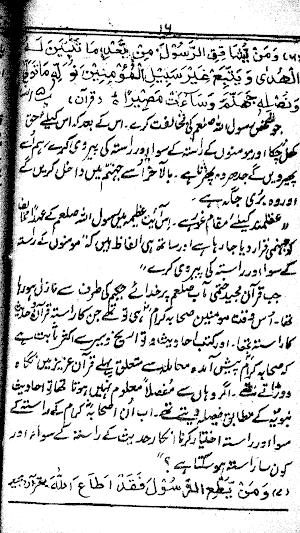 ۱۶
(۶) وَمَنْ يُّشَاقِقِ الرَّسُوْلَ مِنْ بَعْدِ مَا تَبَيَّنَ لَهُ
الْهُدٰى وَيَتَّبِعْ غَيْرَ سَبِيْلِ الْمُؤْمِنِيْنَ نُوَلِّهٖ مَا تَوَلّٰى
وَنُصْلِهٖ جَهَنَّمَ وَسَآءَتْ مَصِيْرًا (قرآن)
جو شخص رسول اللہ صلعم کی مخالفت کرے۔ اس کے بعد کہ اس کیلئے حق
کھل چکا اور مومنوں کے راستہ کے سوا اور راستہ کی پیروی کرے ہم اسے
پھیر دیں گے جدھر وہ پھرتا ہے۔ بالآخر اسے جہنم میں داخل کریں گے
اور وہ بری جگہ ہے۔
عقلمند کیلئے مقام غور ہے۔ اس آیت عظیم میں رسول اللہ صلعم کے
کو جہنمی قرار دیا جا رہا ہے اور ساتھ ہی الفاظ ہیں کہ "مومنوں کے راستہ
کے سوا اور راستہ کی پیروی کرے"
جب قرآن مجید آپ صلعم پر خدائے حکیم کی طرف سے نازل ہو رہا
تھا۔ اس وقت مومنین صحابہ کرام ہی تو تھے جن کا راستہ قرآن و حدیث
کا راستہ تھا۔ اور کتب احادیث و تواریخ و سیر سے اکثر ثابت ہے
کہ صحابہ کرام پیش آمدہ معاملہ سے متعلق پہلے قرآن عزیز میں نگاہ
دوڑاتے تھے۔ اگر وہاں سے مفصلاً معلوم نہیں ہوتا تھا تو احادیث
نبویہ کے مطابق فیصلہ دیتے تھے۔ اب ان صحابہ کرام کے راستہ کے
سوا اور راستہ اختیار کرنا انکار حدیث کے راستہ کے سواء اور
کون سا راستہ ہو سکتا ہے؟"
(۷) وَمَنْ يُّطِعِ الرَّسُوْلَ فَقَدْ اَطَاعَ اللّٰهَ